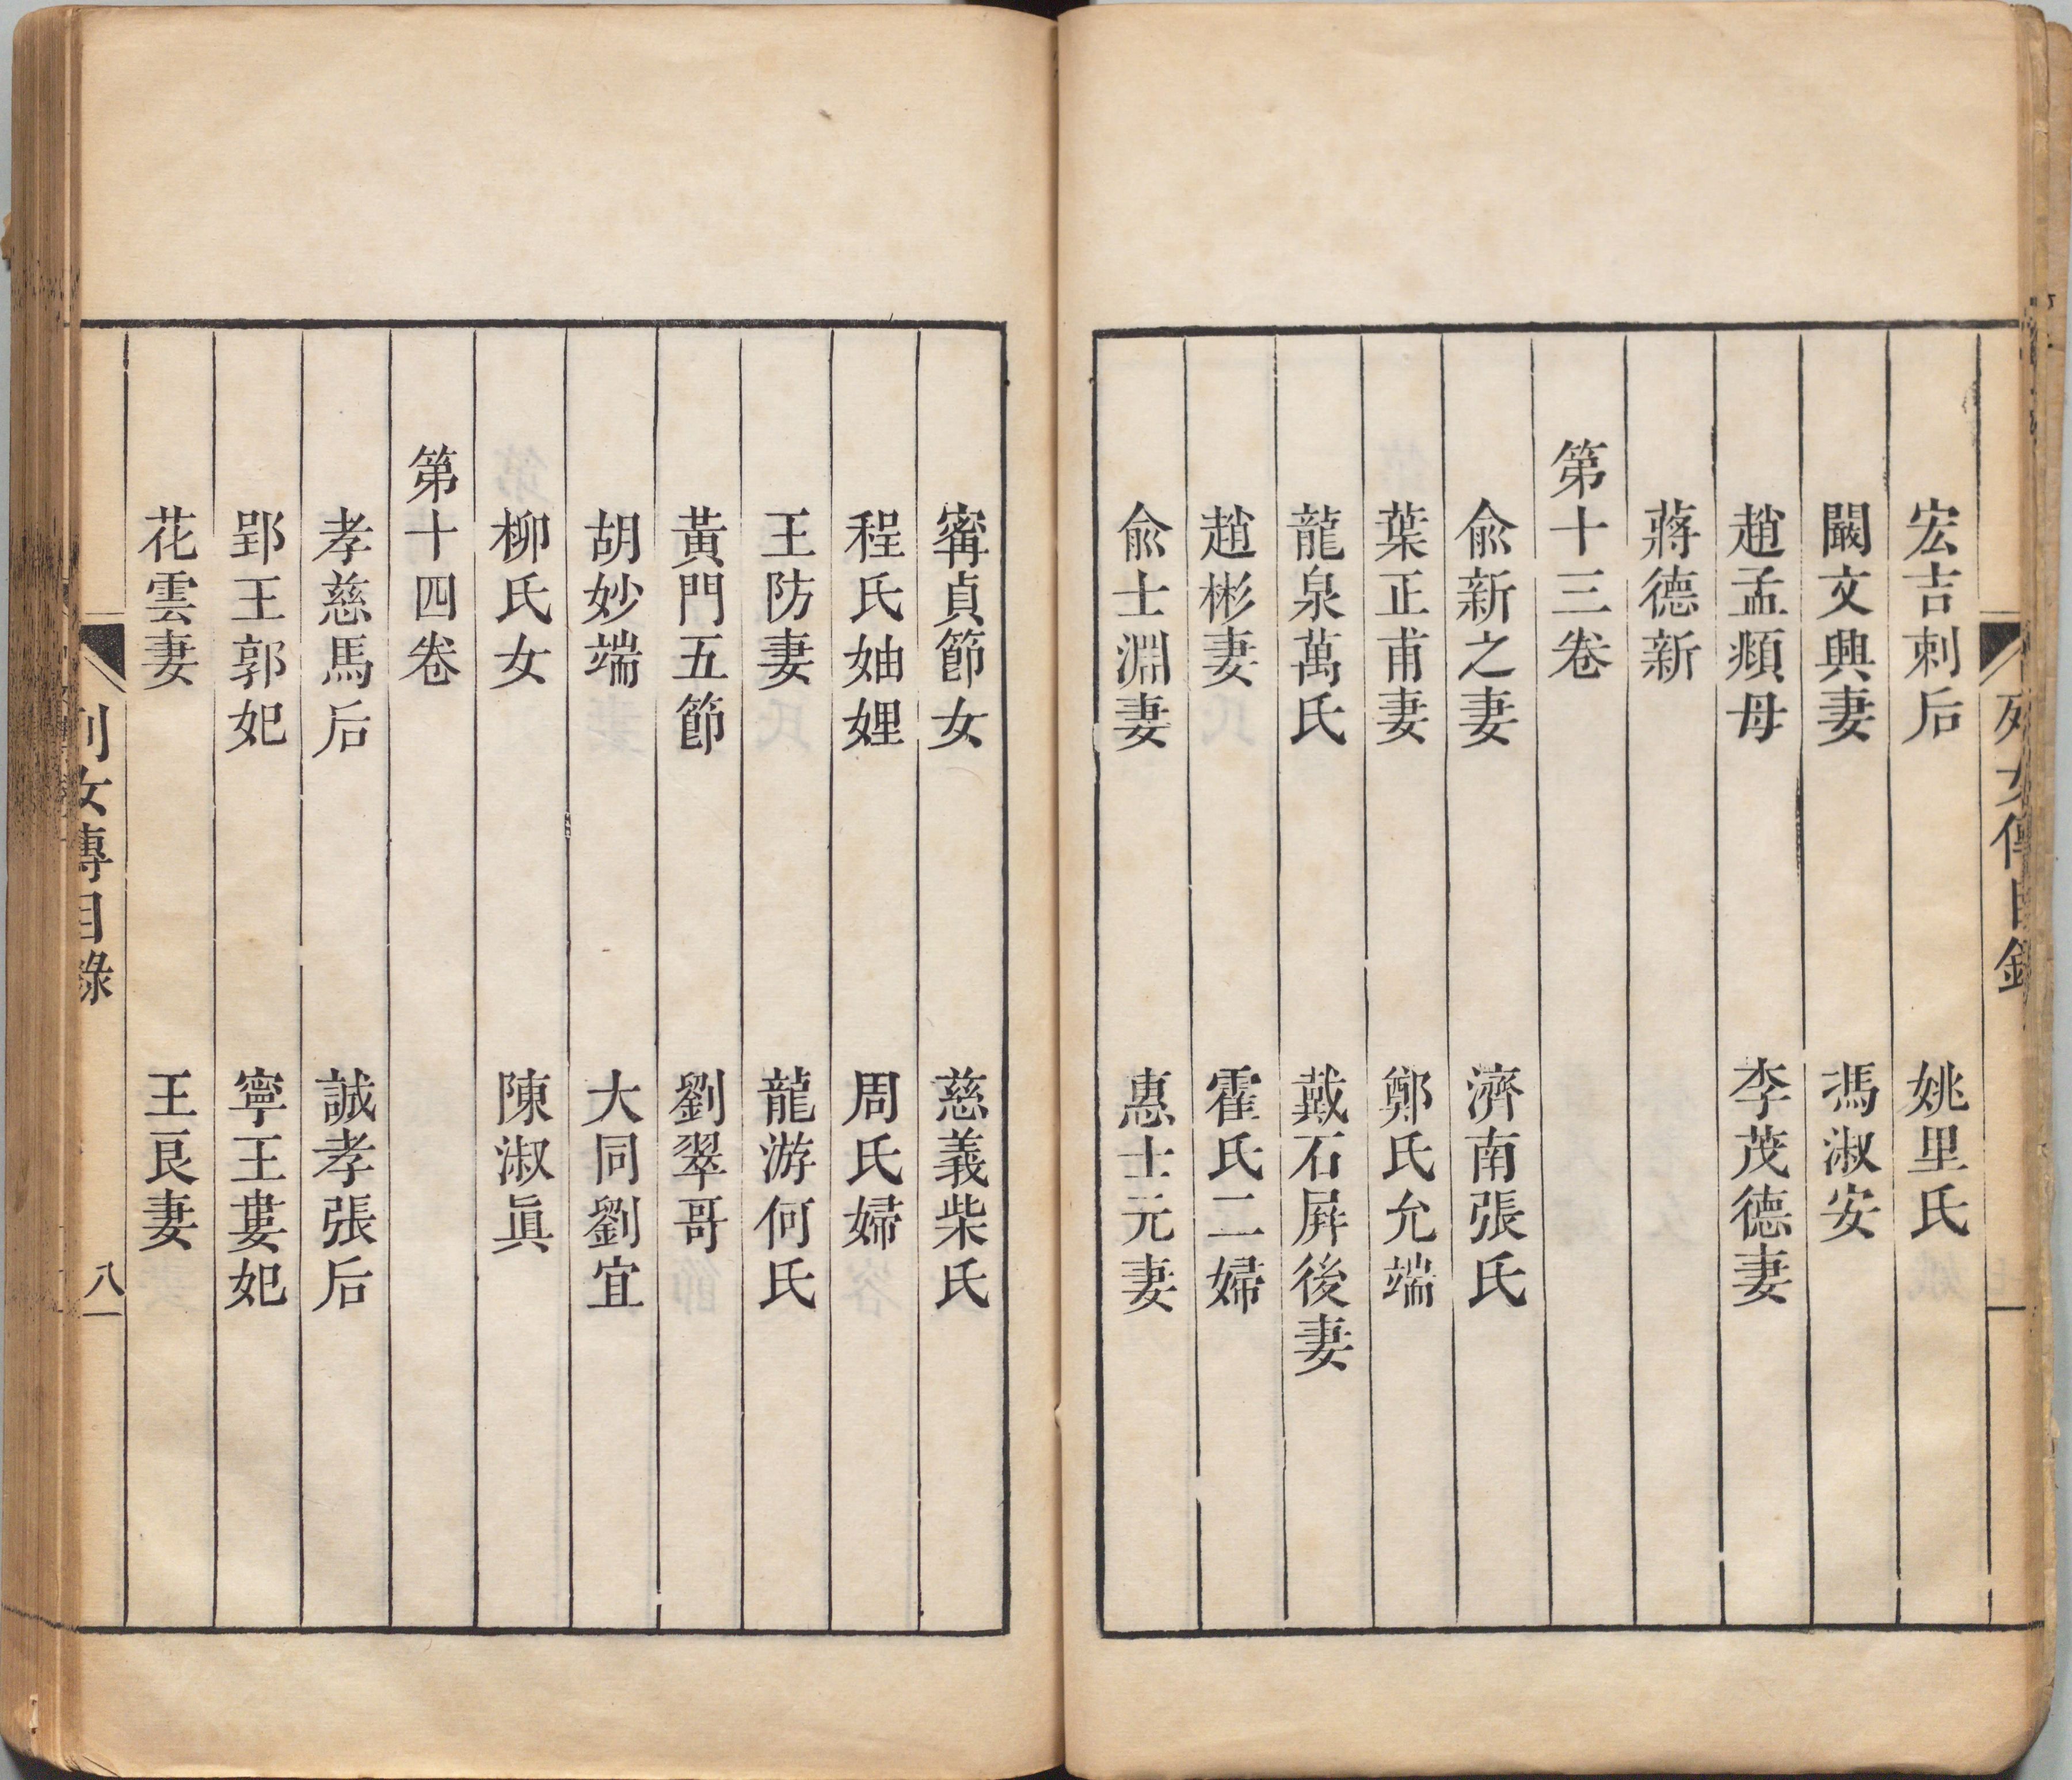 列女傳目錄
宏吉刺后 姚里氏
闞文興妻 馮淑安
趙孟頫母 李茂德妻
蔣德新
第十三卷
兪新之妻 濟南張氏
葉正甫妻 鄭氏允端
龍泉萬氏 戴石屏後妻
趙彬妻 霍氏二婦
兪士淵妻 惠士元妻
甯貞節女 慈義柴氏
程氏妯娌 周氏婦
王防妻 龍游何氏
黃門五節 劉翠哥
胡妙端 大同劉宜
柳氏女 陳淑眞
第十四卷
孝慈馬后 誠孝張后
郢王郭妃 寧王婁妃
花雲妻 王良妻
列女傳目錄 八